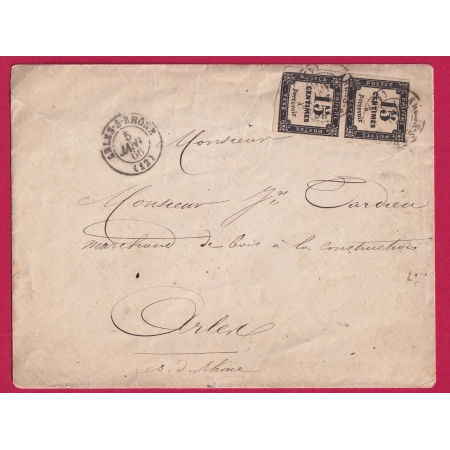 CHIFFRE TAXE
15
CENTIMES
à
percevoir
POSTES
CHIFFRE TAXE
15
CENTIMES
à
percevoir
POSTES
ARLES-S-RHÔNE
5
JANV
66
(12)
Monsieur
Monsieur Jn Tardieu
marchand de bois à la construction
Arles
B. d. Rhône